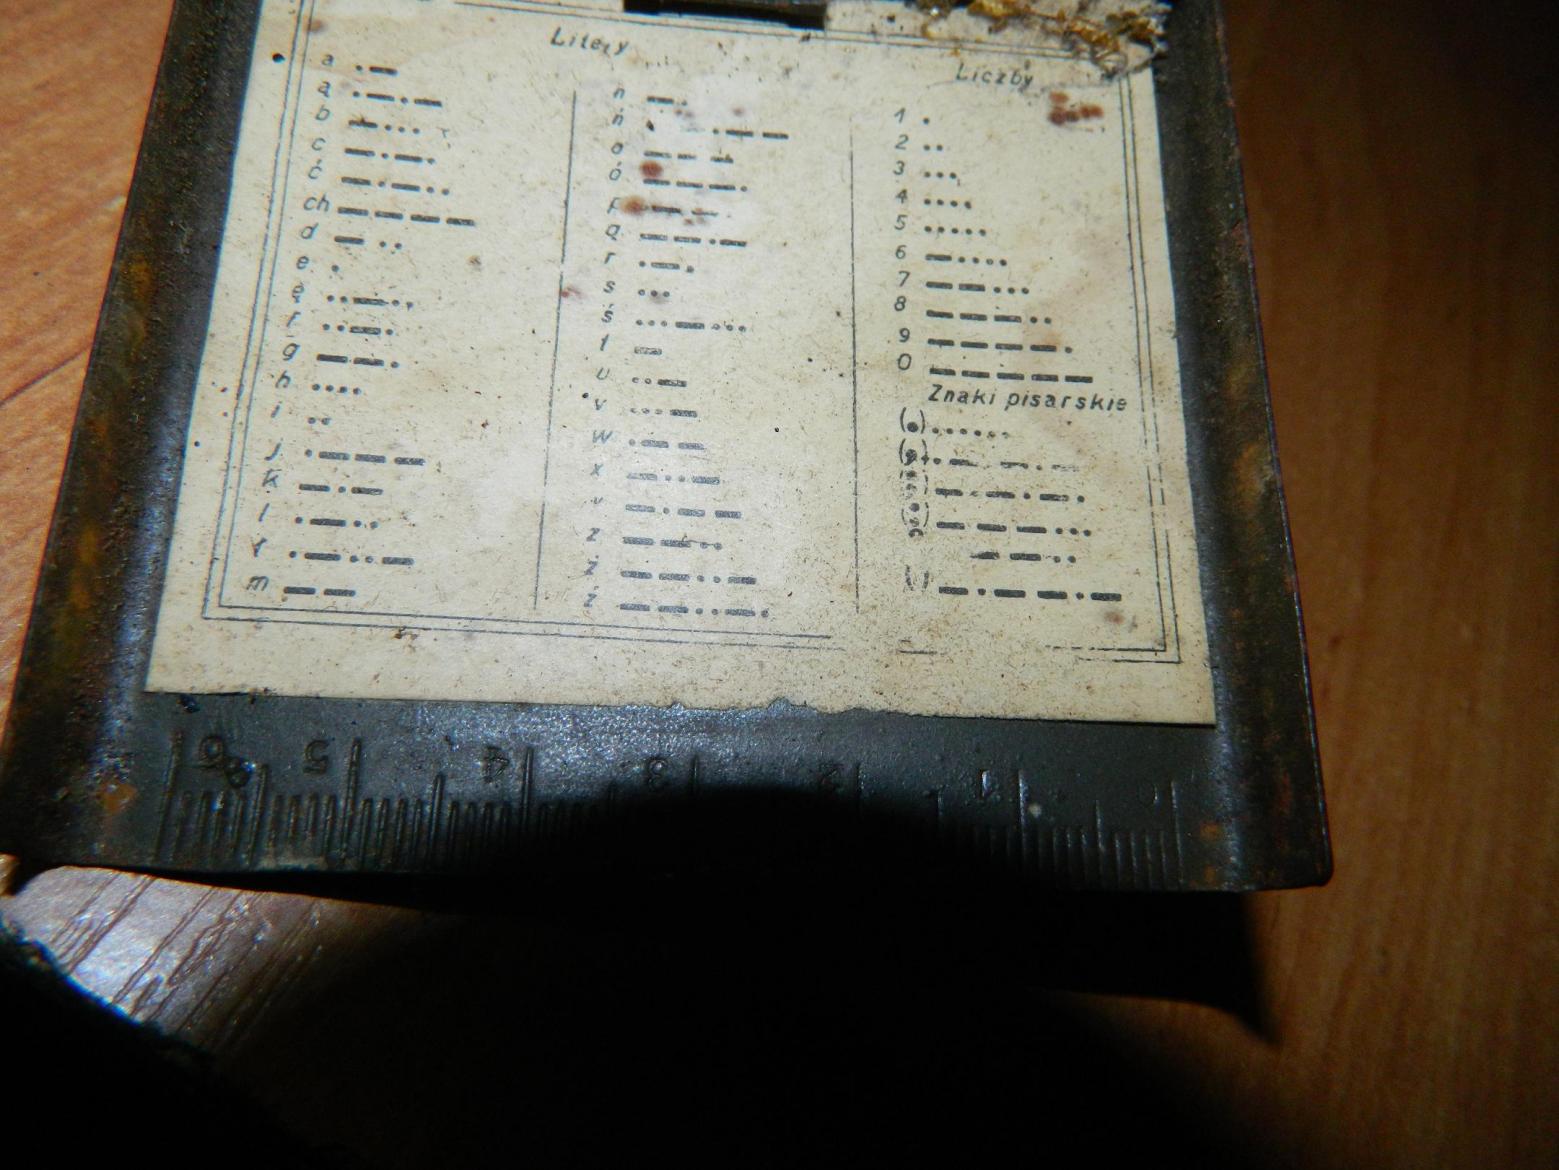 Litery
a .—
ą .—.—
b —...
c —.—.
ć —.—..
ch ————
d —..
e .
ę ..—..
f ..—.
g ——.
h ....
i ..
j .———
k —.—
l .—..
ł .—..—
m ——
n —.
ń .——
o ———
ó ———.
q ——.—
r .—.
ś ...—...
s ...
t —
u ..—
v ...—
w .——
x —..—
—.——
z ——..
ż ——..—
ź ——..—.
Liczby
1 .
2 ..
3 ...
4 ....
5 .....
6 —....
7 ——...
8 ———..
9 ————.
0 —————
Znaki pisarskie
(.) ......
.—.—.—
—.—.—.
———...
——..
—.——.—
6 5 4 3 2 1 0